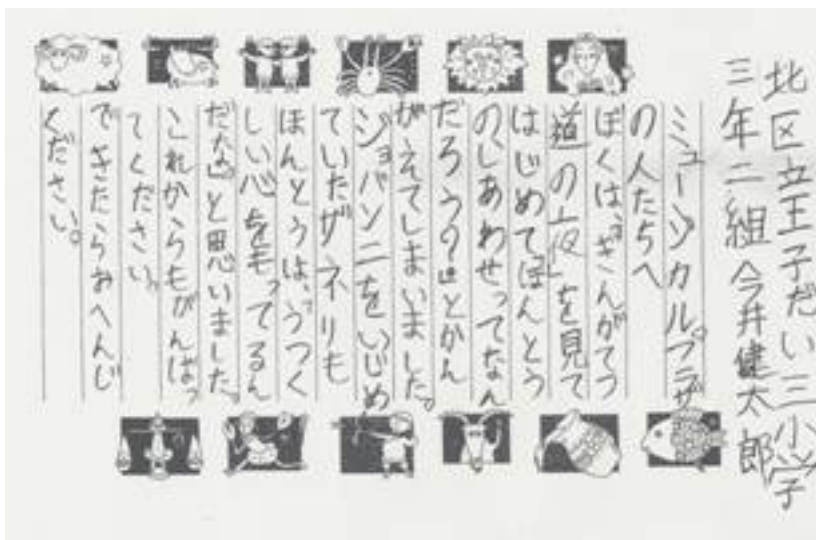 北区立王子だい三小学
三年二組今井健太郎
ミュージカルプラザ
の人たちへ
ぼくは、「ぎんがてつ
道の夜」を見て
はじめて「ほんとう
のしあわせってなん
だろう?」とかん
がえてしまいました。
ジョバンニをいじめ
ていたザネリも
ほんとうは、「うつく
しい心をもってるん
だな」と思いました。
これからもがんばっ
てください。
できたらおへんじ
ください。